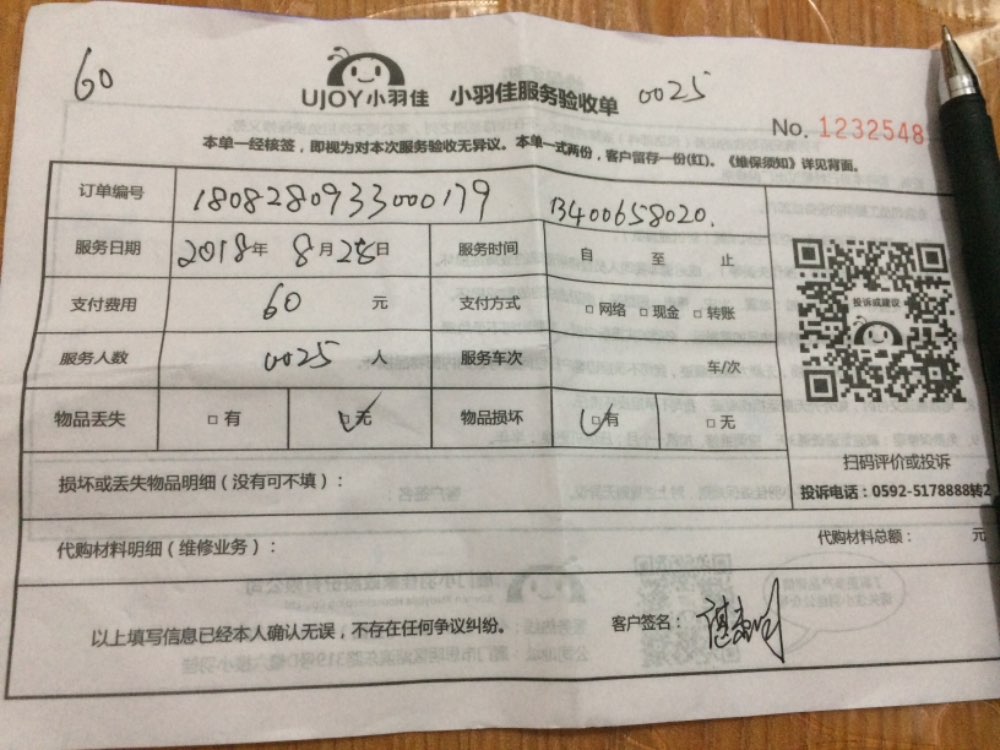 60
UJOY小羽佳 小羽佳服务验收单 0025
No. 1232548
本单一经核签，即视为对本次服务验收无异议。本单一式两份，客户留存一份(红)。《维保须知》详见背面。
订单编号 1808280933000179 13400658020.
服务日期 2018年 8月28日 服务时间 自 至 止
支付费用 60 元 支付方式 □网络 □现金 □转账
服务人数 0025 人 服务车次 车/次
物品丢失 □有 □无 物品损坏 □有 □无
投诉或建议
扫码评价或投诉
投诉电话：0592-5178888转2
损坏或丢失物品明细（没有可不填）：
代购材料明细（维修业务）： 代购材料总额： 元
以上填写信息已经本人确认无误，不存在任何争议纠纷。 客户签名：